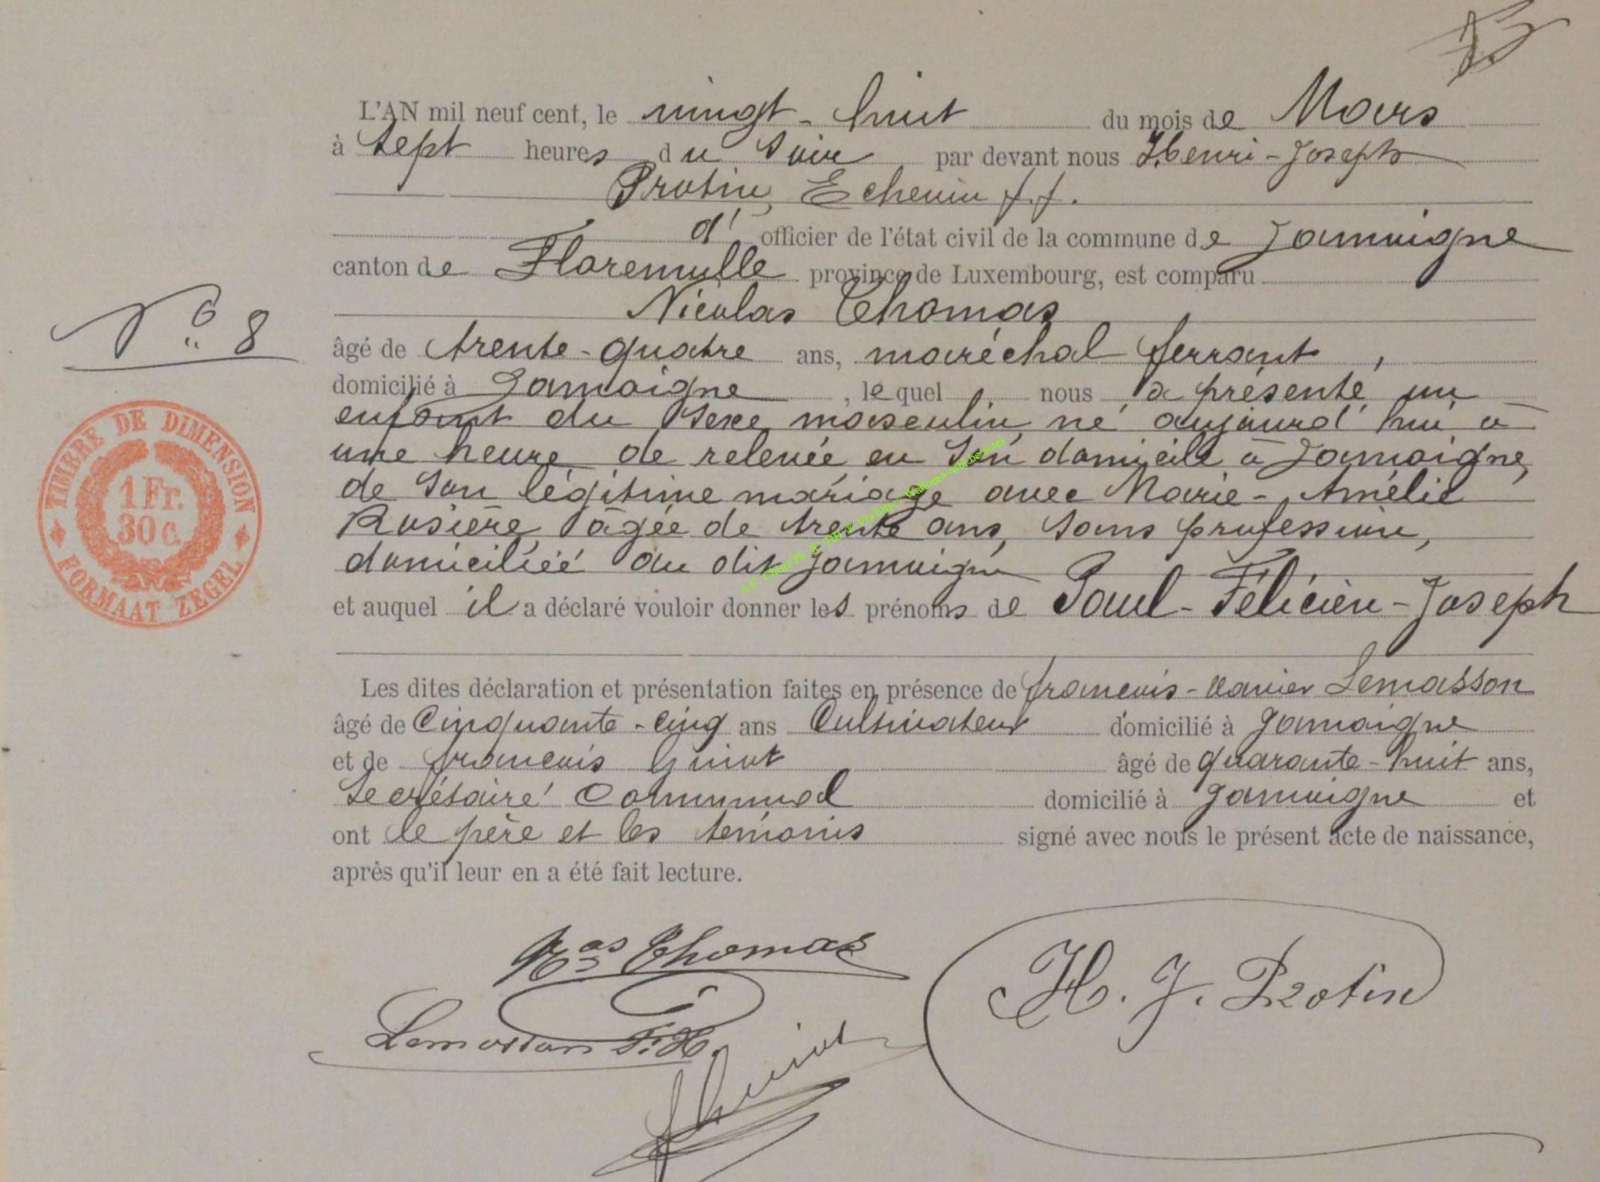 L'AN mil neuf cent, le vingt-huit du mois de Mars
à sept heures du soir par devant nous Henri-Joseph
Protin, Echevin f.f.
d' officier de l'état civil de la commune de Jamoigne
canton de Florenville province de Luxembourg, est comparu
Nicolas Thomas
N° 8
âgé de trente-quatre ans, maréchal ferrant,
domicilié à Jamoigne, lequel nous a présenté un
enfant du sexe masculin né aujourd'hui à
une heure de relevée en son domicile à Jamoigne,
de son légitime mariage avec Marie-Amélie
Rosière, âgée de trente ans, sans profession,
domiciliée au dit Jamoigne
et auquel il a déclaré vouloir donner les prénoms de Paul-Félicien-Joseph
TIMBRE DE DIMENSION
1 Fr.
30 c.
FORMAAT ZEGEL
Les dites déclaration et présentation faites en présence de françois-Xavier Lemasson
âgé de Cinquante-cinq ans Cultivateur domicilié à Jamoigne
et de françois Guiot âgé de quarante-huit ans,
Secrétaire Communal domicilié à Jamoigne et
ont le père et les témoins signé avec nous le présent acte de naissance,
après qu'il leur en a été fait lecture.
Nas Thomas
H. J. Protin
Lemasson F. X.
f Guiot